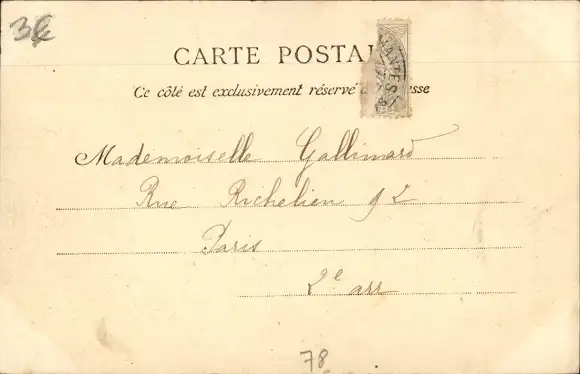 3€
CARTE POSTA
MANTES
Ce côté est exclusivement réservé esse
Mademoiselle Gallimard
Rue Richelieu 92
Paris
2e arr
78